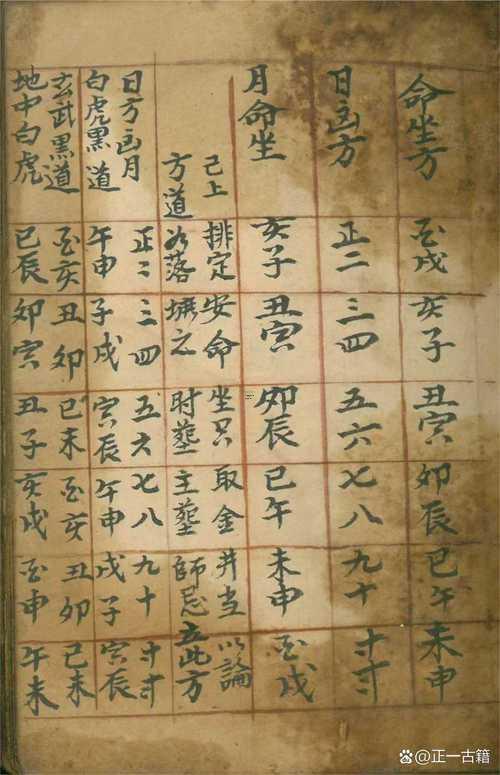 命坐方 酉戌 亥子 丑寅 卯辰 巳午 未申
日凶方 正二 三四 五六 七八 九十 十一十二
月命坐 亥子 丑寅 卯辰 巳午 未申 酉戌
己上排定安命坐只取金井当以論
方道落壙之时墓主墓師忌立此方
日方凶月 正二 三四 五六 七八 九十 十一十二
白虎黑道 午申 子戌 寅辰 午申 戌子 寅辰
玄武黑道 酉亥 丑卯 巳未 酉亥 丑卯 巳未
地中白虎 巳辰 卯寅 丑子 亥戌 酉申 午未
@正一古籍